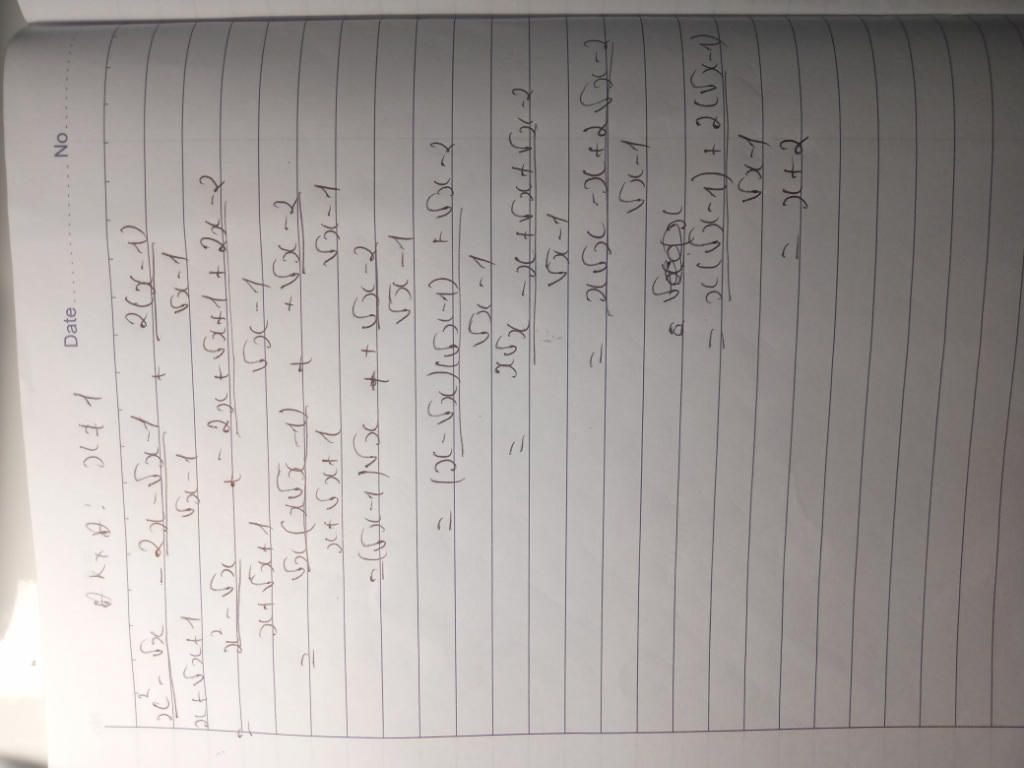 Date............ No............
ĐKXĐ: x ≠ 1
x² - √x / x + √x + 1 - 2x - √x - 1 / √x - 1 + 2(x - 1) / √x - 1
= x² - √x / x + √x + 1 + - 2x + √x + 1 + 2x - 2 / √x - 1
= √x(x√x - 1) / x + √x + 1 + + √x - 2 / √x - 1
= (√x - 1)√x + + √x - 2 / √x - 1
= (x - √x)(√x - 1) + √x - 2 / √x - 1
= x√x - x + √x + √x - 2 / √x - 1
= x√x - x + 2√x - 2 / √x - 1
= x(√x - 1) + 2(√x - 1) / √x - 1
= x + 2